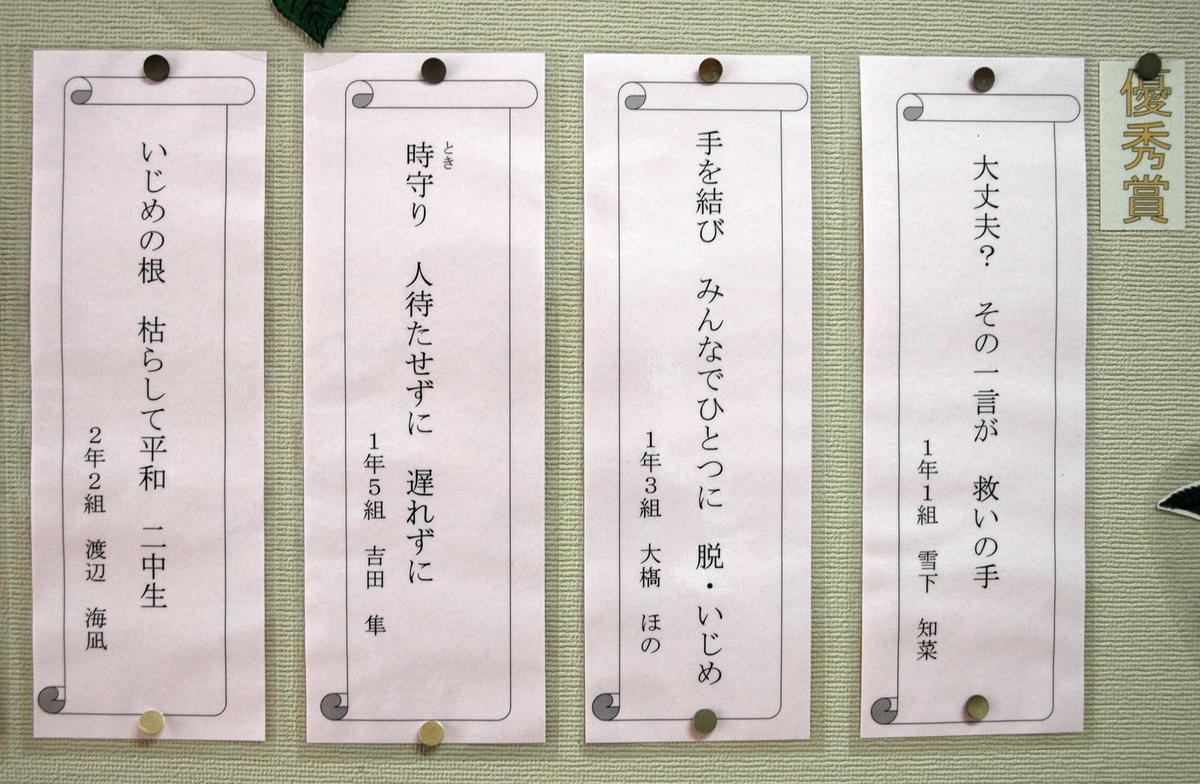 優秀賞
大丈夫？　その一言が　救いの手
１年１組　雪下　知菜
手を結び　みんなでひとつに　脱・いじめ
１年３組　大槗　ほの
とき
時守り　人待たせずに　遅れずに
１年５組　吉田　隼
いじめの根　枯らして平和　二中生
２年２組　渡辺　海凪